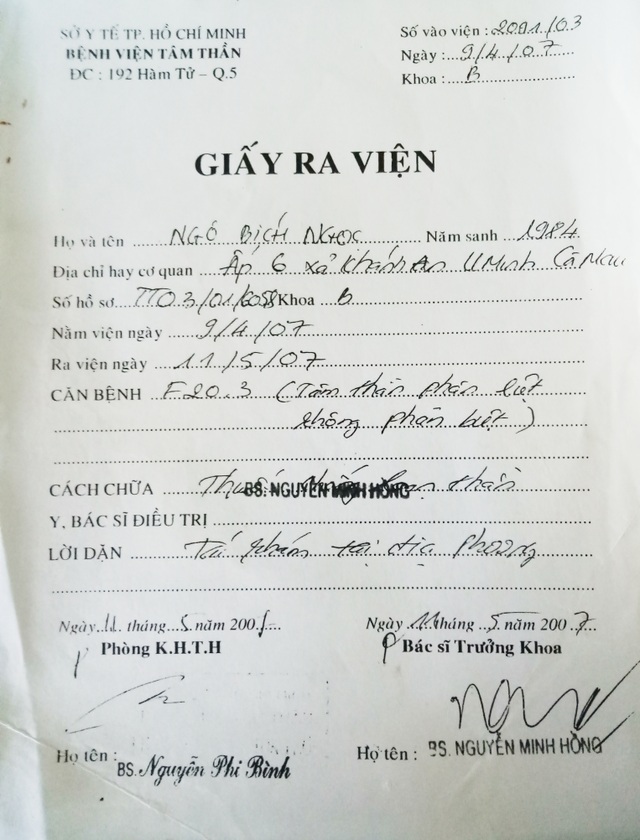 SỞ Y TẾ TP. HỒ CHÍ MINH
BỆNH VIỆN TÂM THẦN
ĐC : 192 Hàm Tử – Q.5
Số vào viện : 2091/03
Ngày : 9/4/07
Khoa : B
GIẤY RA VIỆN
Họ và tên NGÔ BÍCH NGỌC Năm sanh 1984
Địa chỉ hay cơ quan Ấp 6 xã Khánh An U Minh Cà Mau
Số hồ sơ TT03/01/ Khoa B
Nằm viện ngày 9/4/07
Ra viện ngày 11/5/07
CĂN BỆNH F20.3 (Tâm thần phân liệt
không phân biệt)
CÁCH CHỮA Thuốc thần
BS. NGUYỄN MINH HỒNG
Y, BÁC SĨ ĐIỀU TRỊ
LỜI DẶN Tái khám tại địa phương
Ngày 11 tháng 5 năm 200
Phòng K.H.T.H
Họ tên : BS. Nguyễn Phi Bình
Ngày 11 tháng 5 năm 2007
Bác sĩ Trưởng Khoa
Họ tên : BS. NGUYỄN MINH HỒNG